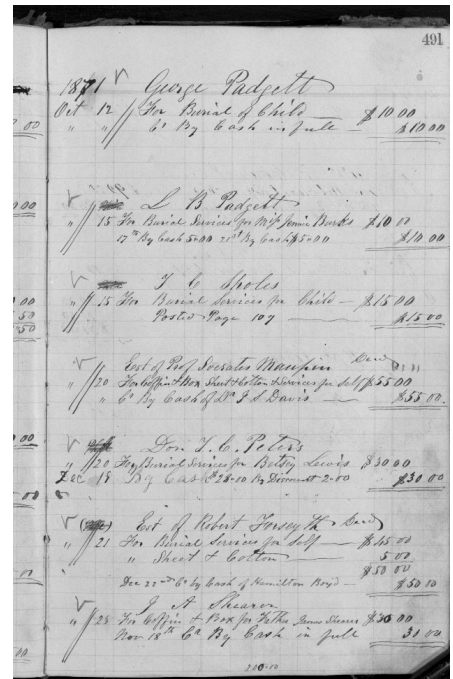 491
1871 George Padgett
Oct 12 For Burial of Child $10 00
" " Cr By Cash in full $10 00
L B Padgett
" 15 For Burial Services for Miss Jennie Burks $10 00
17th By Cash 5.00 21st By Cash $5.00 $10 00
T C Sholes
" 15 For Burial Services for Child $15 00
Posted Page 107 $15 00
Est of Prof Socrates Maupin Decd
" 20 For Coffin & Box Sheet & Cotton & Services for self $55 00
" Cr By Cash of Dr J S Davis $55 00
Don T. C. Peters
" 20 For Burial Services for Betsey Lewis $30 00
Dec 18 By Cash $28.10 By Discount 2.00 $30 00
Est of Robert Forsyth Decd
" 21 For Burial Services for Self $45 00
" Sheet & Cotton 5 00
$50 00
Dec 22nd Cr by Cash of Hamilton Boyd $50 00
J A Shearer
" 25 For Coffin & Box for Father James $30 00
Nov 18th Cr By Cash in full 30 00
200.10